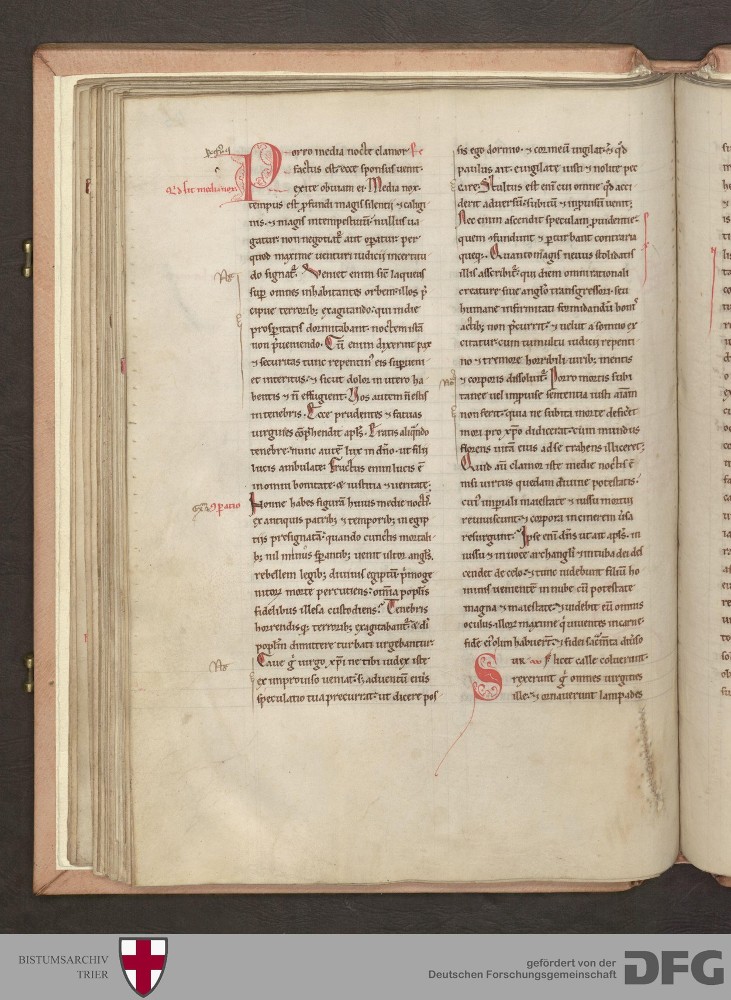 Porro media nocte clamor
factus est. ecce sponsus uenit.
exite obuiam ei. Media nox.
tempus est ꝓfundi magis silentii ⁊ caligi
nis. ⁊ magis intempestiuũ. nullus ua
gatur. non negotiat᷑ aut oꝑatur. per
quod maxime venturi iudicii incertitu
do signat᷑. Veniet enim sic̃ laqueus
suꝑ omnes inhabitantes orbem. illos p̃
cipue terroribꝫ exagitando. qui in die
prosperitatis dormitabant. noctem istã
non p̃ueniendo. Cũ enim dixerint pax
⁊ securitas tunc repentinꝰ eis suꝑueni
et interitus. ⁊ sicut dolor in utero ha
bentis ⁊ ñ effugient. Vos autem ñ estis
in tenebris. Ecce prudentes ⁊ fatuas
uirgines cõp̃hendit apls̃. Eratis aliqñdo
tenebre. nunc autẽ lux in dño. ut filii
lucis ambulate. Fructus enim lucis ẽ
in omni bonitate. ⁊ iustitia ⁊ ueritate.
Nonne habes figurã huius medie noctis.
ex antiquis patribꝫ ⁊ temporibꝫ in egip
tiis presignatã. quando cunctis mortali
bꝫ nil minus sꝑantibꝫ. uenit ultor angls̃.
rebellem legibꝫ diuinis egiptũ. p̃moge
nitorꝫ morte percutiens. om̃ia popl̃is
fidelibus illesa custodiens. Tenebris
horrendisqꝫ terroribꝫ exagitabant᷑. ⁊ di
popl̃m dimittere turbati urgebantur.
Caue g̊ uirgo xp̃i ne tibi iudex iste
ex improuiso ueniat. sꝫ aduentũ eius
speculatio tua precurrat. ut dicere pos
sis ego dormio. ⁊ cor meũ uigilat. ⁊ qd̃
paulus ait. euigilate iusti ⁊ nolite pec
care. Stultus est enĩ cui omne qd̃ acci
derit aduersũ. subitũ ⁊ inpuisũ uenit.
Nec enim ascendit speculam ꝓuidentie.
quem ꝯfundunt ⁊ ꝑturbant contraria
queqꝫ. Quanto magis neuus stoliditatis
illi asscribit᷑. qui diem omni rationali
creature siue anglo transgressori. seu
humane infirmitati formidandũ bonis
actibꝫ non p̃currit. ⁊ uelut a somno ex
citatur. cum tumultu iudicii repenti
no ⁊ tremore horribili. uiribꝫ mentis
⁊ corporis dissoluit᷑. Porro mortis subi
tanee uel impuise sententia iusti aĩam
non ferit. quia ne subita morte deficeret
mori pro xp̃o didicerat. cum mundus
florens uitã eius ad se trahens illiceret.
Quid aũ clamor iste medie noctis ẽ
nisi uirtus quedam diuine potestatis.
cuiꝰ imꝑiali maiestate ⁊ iussu mortui
reuiuiscunt. ⁊ corpora in cinerem uersa
resurgunt. Ipse enĩ dñs ut ait apls̃. in
iussu ⁊ in uoce archangli ⁊ in tuba dei des
cendet de celo. ⁊ tunc uidebunt filiũ ho
minis uenientẽ in nube. cũ potestate
magna ⁊ maiestate. ⁊ uidebit eũ omnis
oculus. illorꝫ maxime q̃ uiuentes in carne.
fidẽ eiꝰ olim habuerũt. ⁊ fidei sacm̃ta
rexerunt g̊ omnes uirgines
ille. ⁊ ornauerunt lampades
BISTUMSARCHIV
TRIER
gefördert von der
Deutschen Forschungsgemeinschaft
DFG